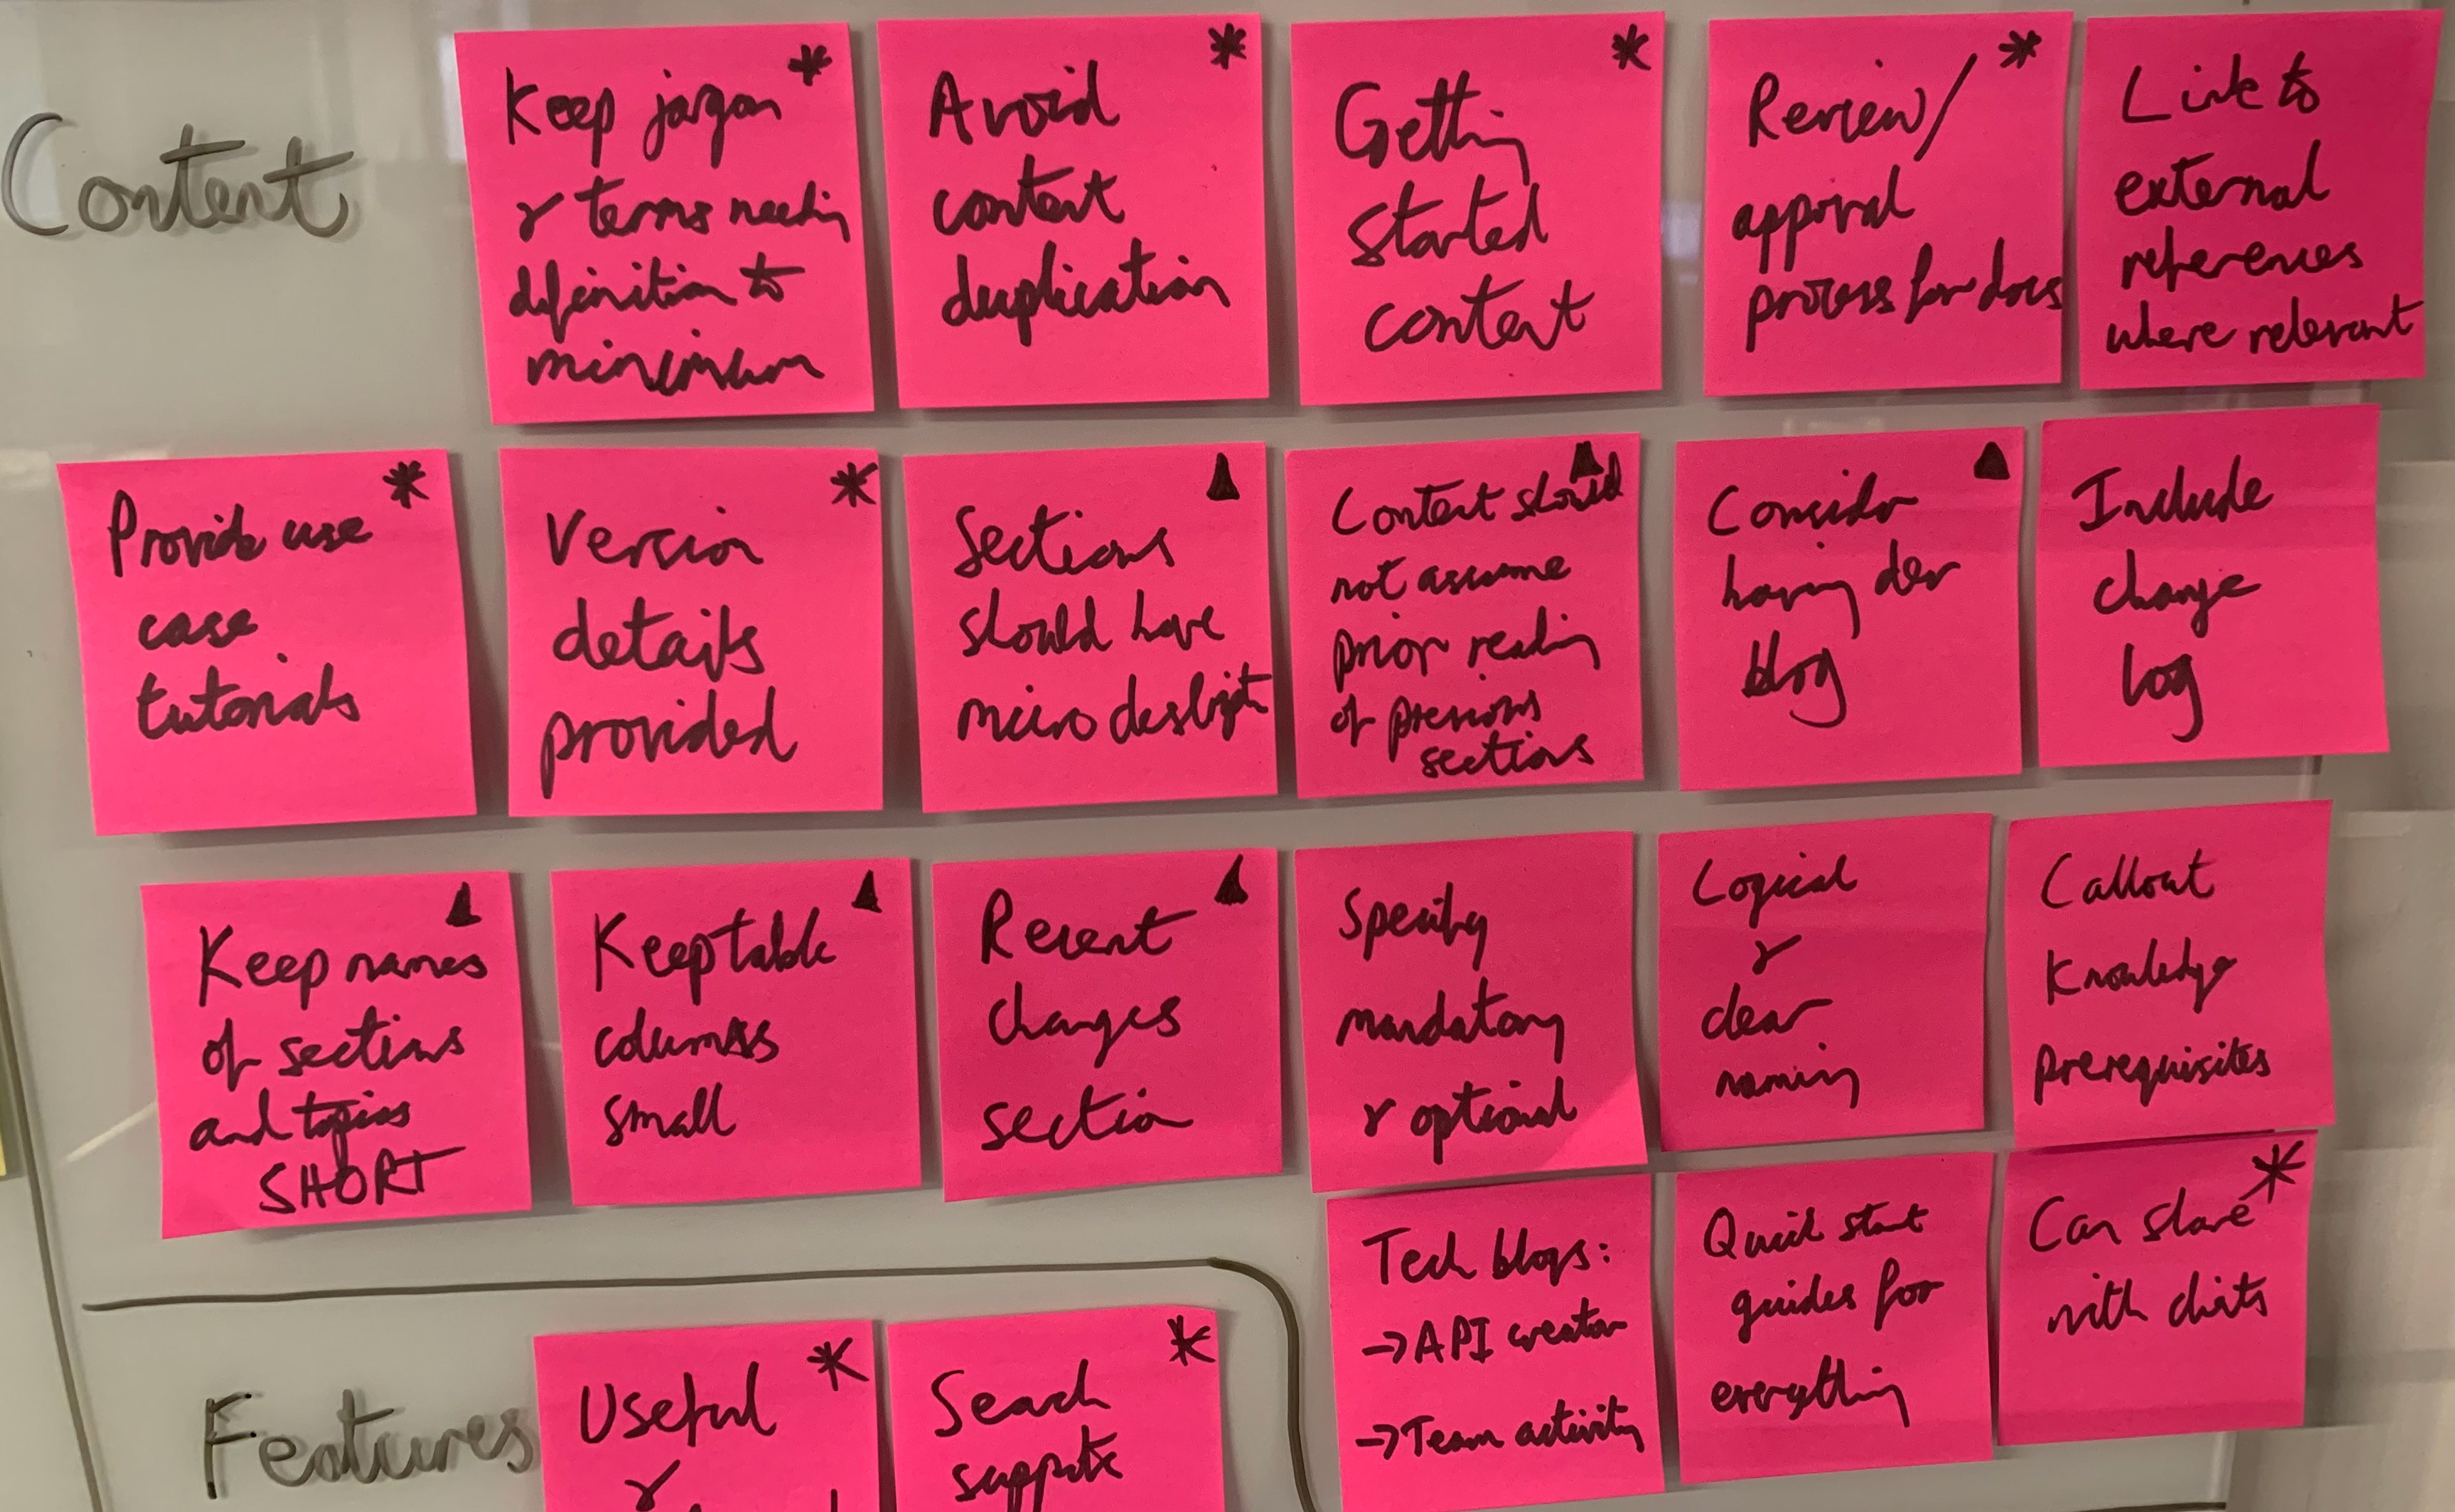 Content
Keep jargon *
& terms needing
definition to
minimum
Avoid *
content
duplication
Getting *
started
content
Review/ *
approval
process for docs
Link to
external
references
where relevant
Provide use *
case
tutorials
Version *
details
provided
Sections
should have
micro
Content should
not assume
prior reading
of previous
sections
Consider
having dev
blog
Include
change
log
Keep names
of sections
and topics
SHORT
Keep table
columns
small
Recent
changes
section
Specify
mandatory
& optional
Logical
&
clear
naming
Callout
Knowledge
prerequisites
Tech blogs:
→ API creation
→ Team activity
Quick start
guides for
everything
Can share *
with clients
Features
Useful *
&
Search *